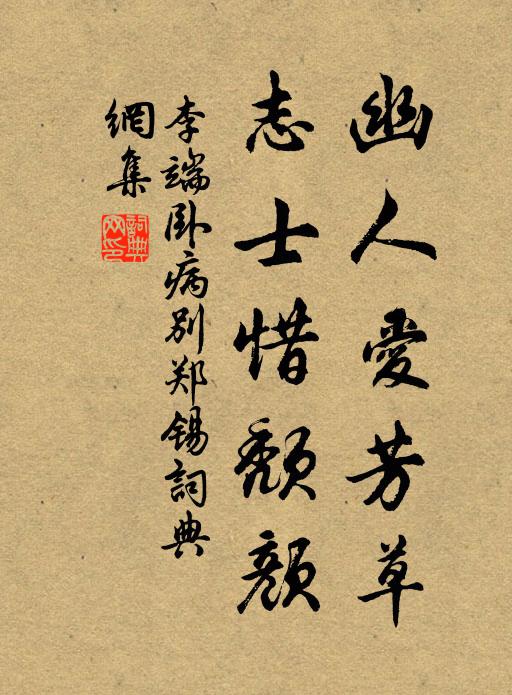 幽人愛芳草
志士惜頹顏
李端卧病别郑锡詞典
網集
詞典网印